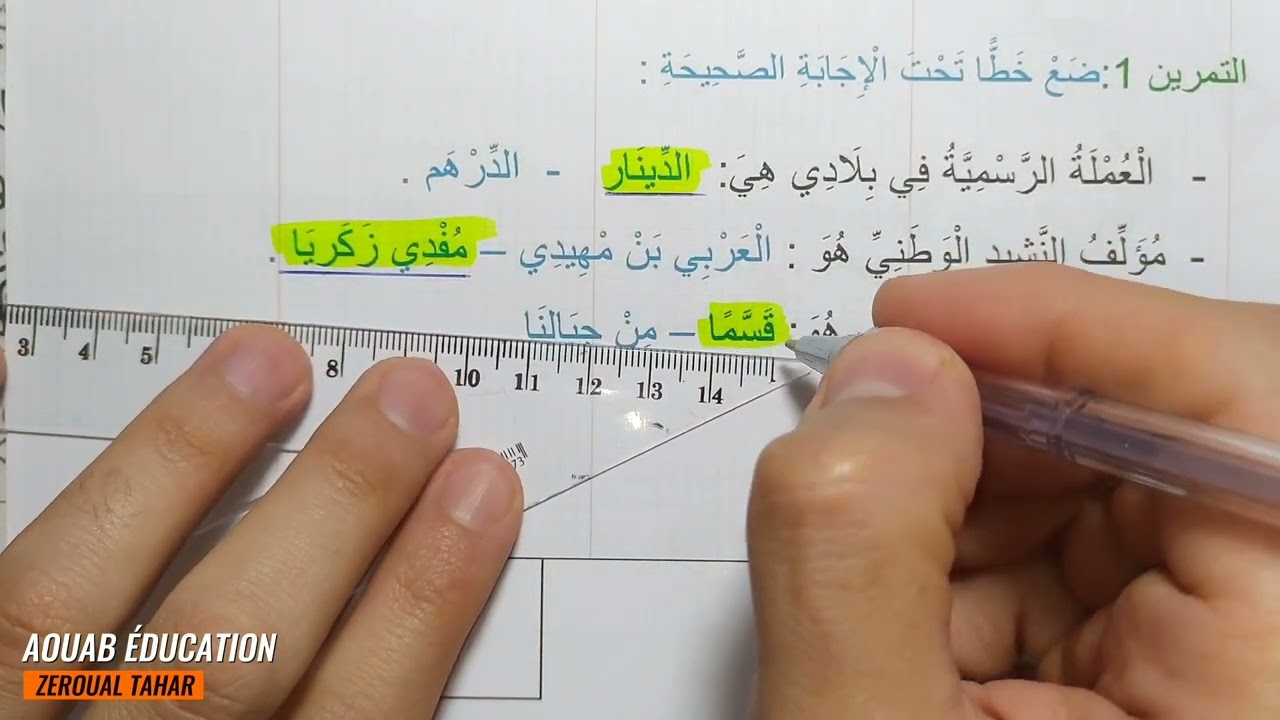 التمرين 1:ضَعْ خَطًّا تَحْتَ الْإِجَابَةِ الصَّحِيحَةِ :
- الْعُمْلَةُ الرَّسْمِيَّةُ فِي بِلَادِي هِيَ: الدِّينَار - الدِّرْهَم .
- مُؤَلِّفُ النَّشِيدِ الْوَطَنِيِّ هُوَ : الْعَرْبِي بَنْ مْهِيدِي – مُفْدِي زَكَرِيَا .
هُوَ: قَسَّمًا – مِنْ جِبَالِنَا
3 4 5 8 10 11 12 13 14
73
AOUAB ÉDUCATION
ZEROUAL TAHAR